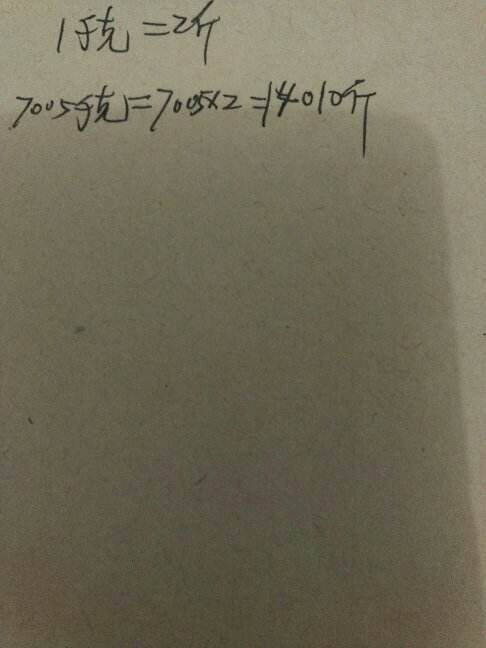 1千克=2斤
7005千克=7005×2=14010斤